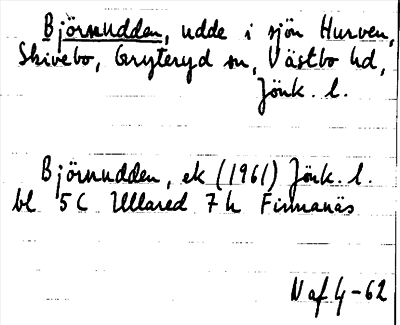 Björnudden, udde i sjön Hurven,
Skivebo, Gryteryd sn, Västbo hd,
Jönk. l.
Björnudden, ek (1961) Jönk. l.
bl 5C Ullared 7h Finnanäs
N af 4-62